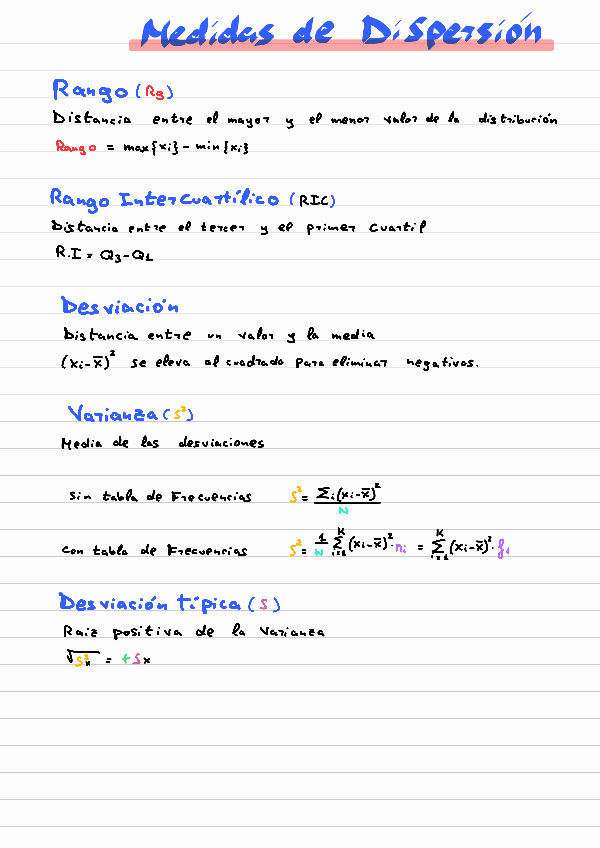 Medidas de Dispersión
Rango (Rg)
Distancia entre el mayor y el menor valor de la distribución
Rango = max{xi} - min{xi}
Rango Intercuartílico (RIC)
Distancia entre el tercer y el primer cuartil
R.I = Q3-Q1
Desviación
Distancia entre un valor y la media
(xi-x̄)² se eleva al cuadrado para eliminar negativos.
Varianza (s²)
Media de las desviaciones
Sin tabla de Frecuencias S² = Σi(xi-x̄)² / N
Con tabla de Frecuencias S² = 1/N Σ_{i=1}^{K} (xi-x̄)²·ni = Σ_{i=1}^{K} (xi-x̄)²·fi
Desviación típica (S)
Raiz positiva de la varianza
√S²x = +Sx